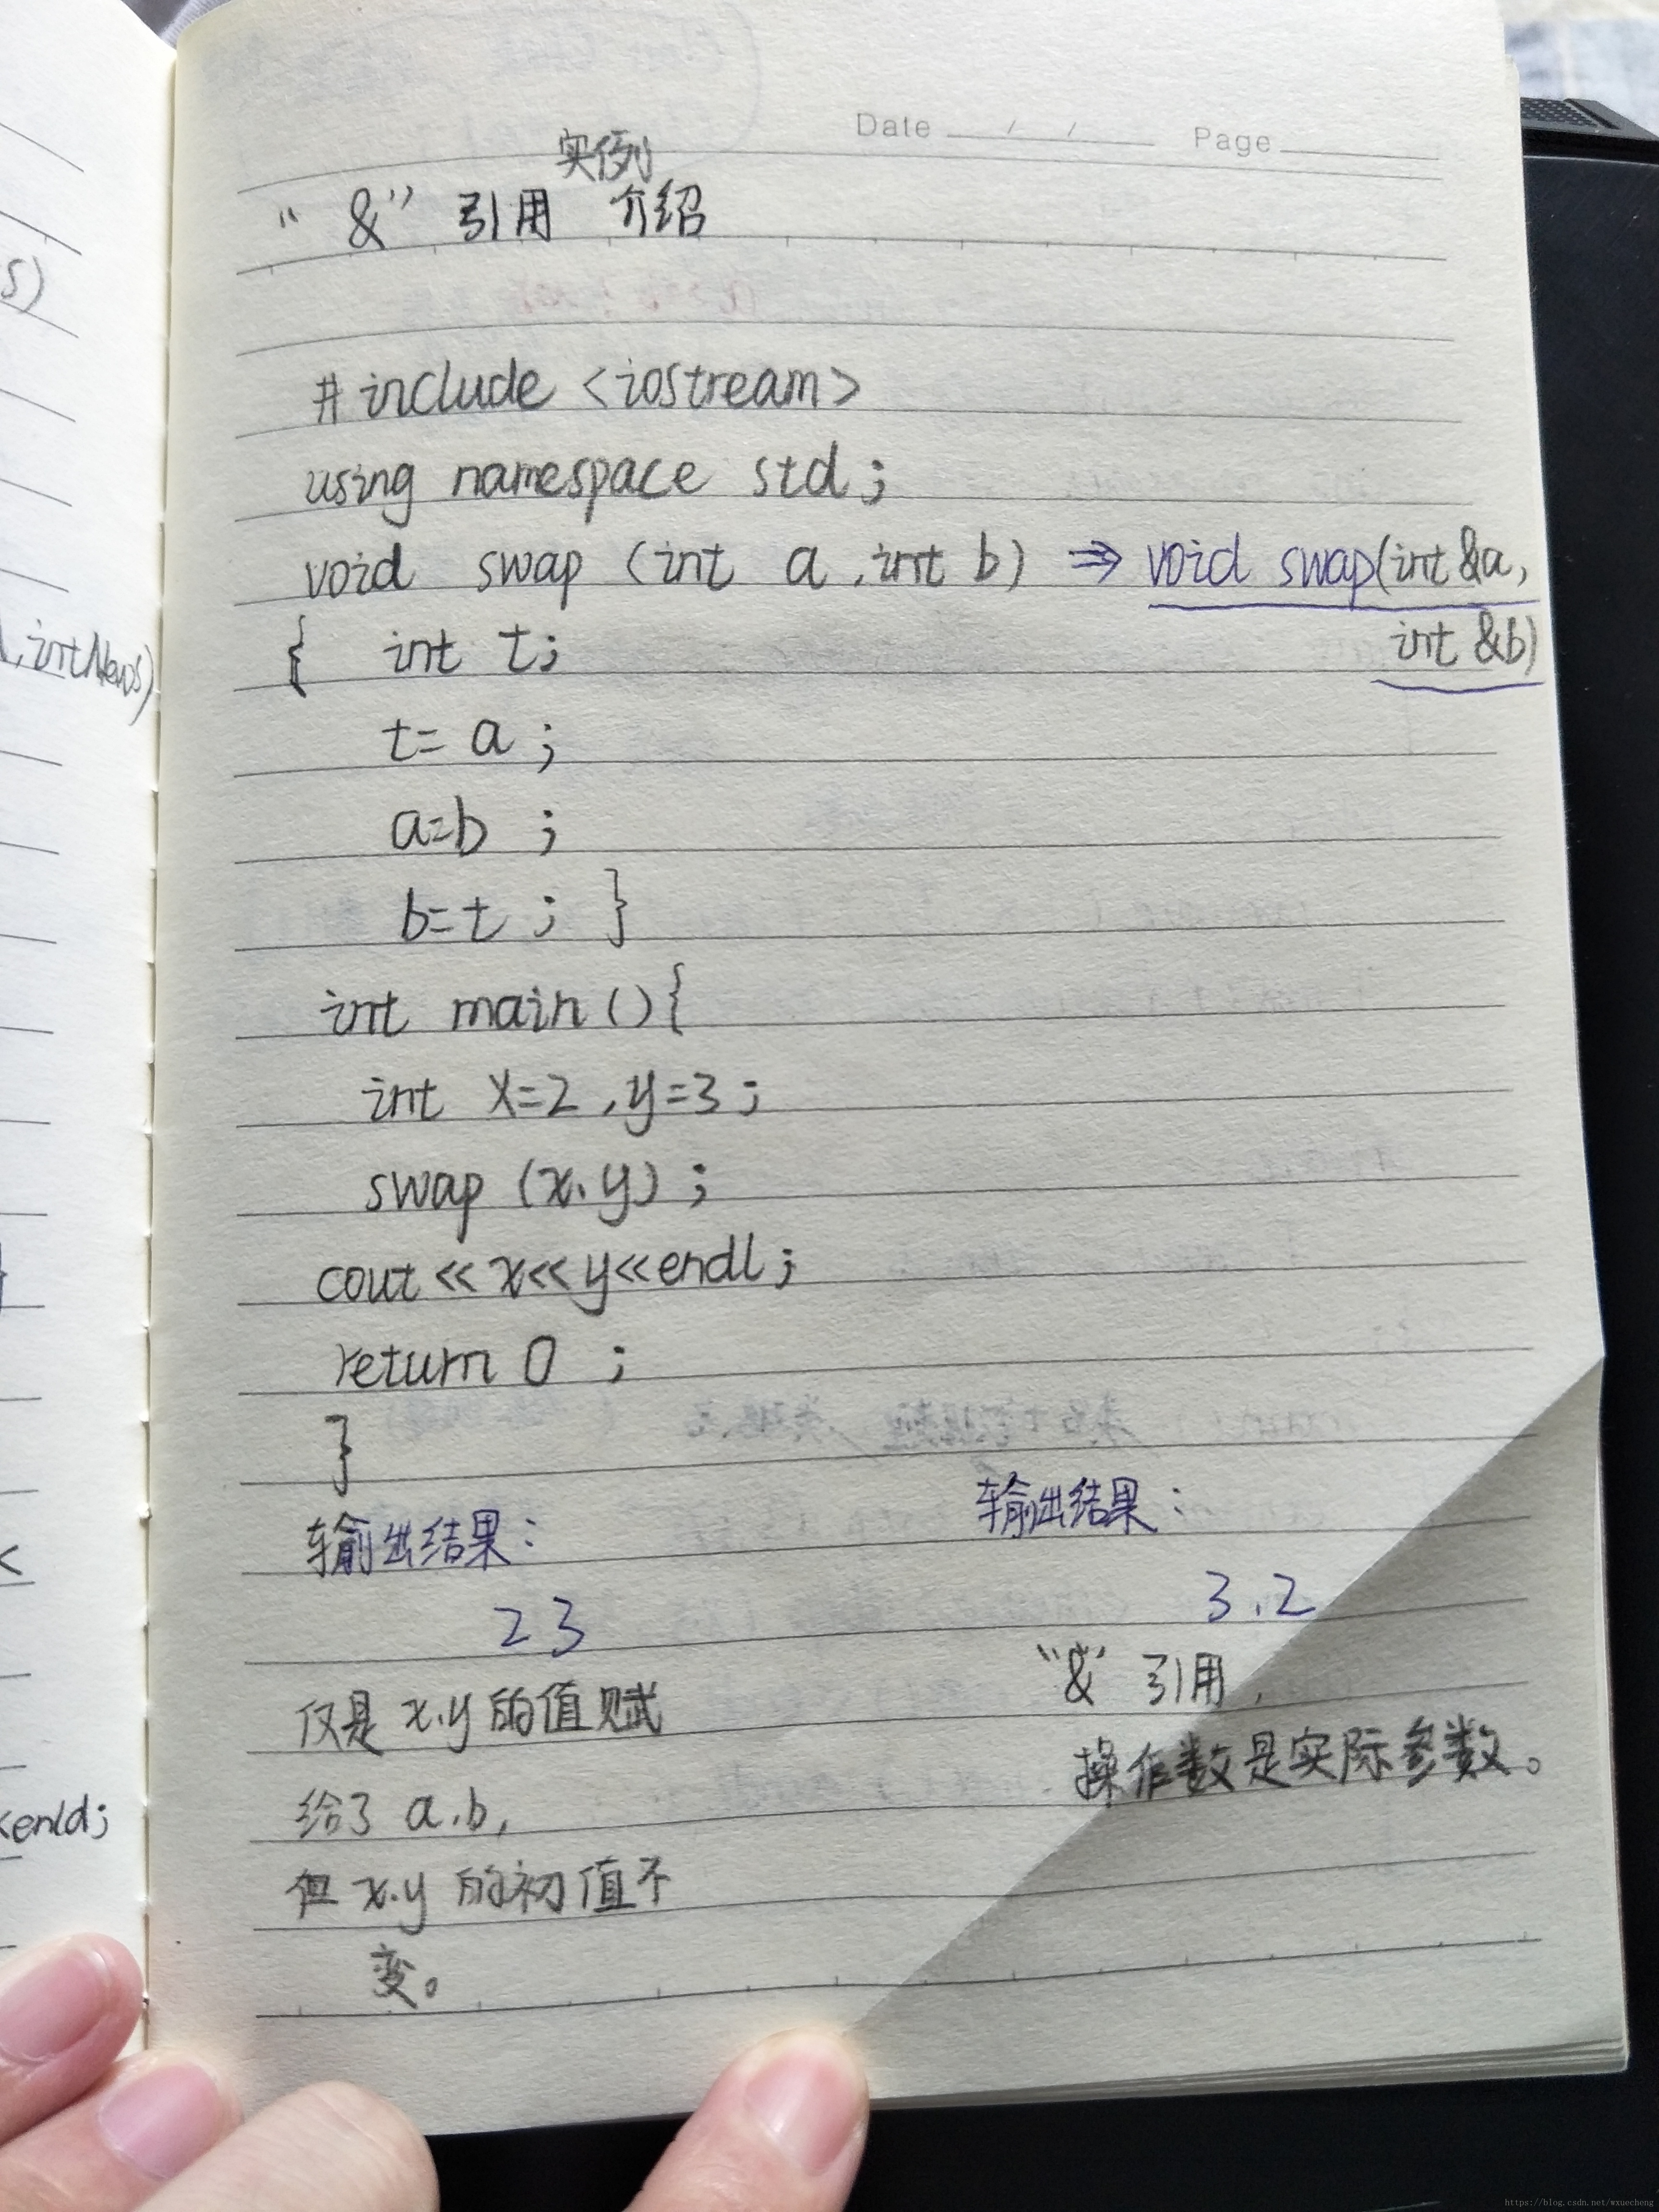 Date / / Page
实例
“&” 引用 介绍
#include <iostream>
using namespace std;
void swap (int a, int b) ⇒ void swap(int &a,
int &b)
{ int t;
t= a ;
a=b ;
b=t ; }
int main(){
int x=2, y=3;
swap (x, y) ;
cout << x<< y<<endl;
return 0 ;
}
输出结果:
2 3
仅是 x.y 的值赋
给了 a.b,
但 x.y 的初值不
变。
输出结果:
3.2
“&” 引用,
操作数是实际参数。
S)
,intNewS)
<
<endl;
https://blog.csdn.net/wxuecheng